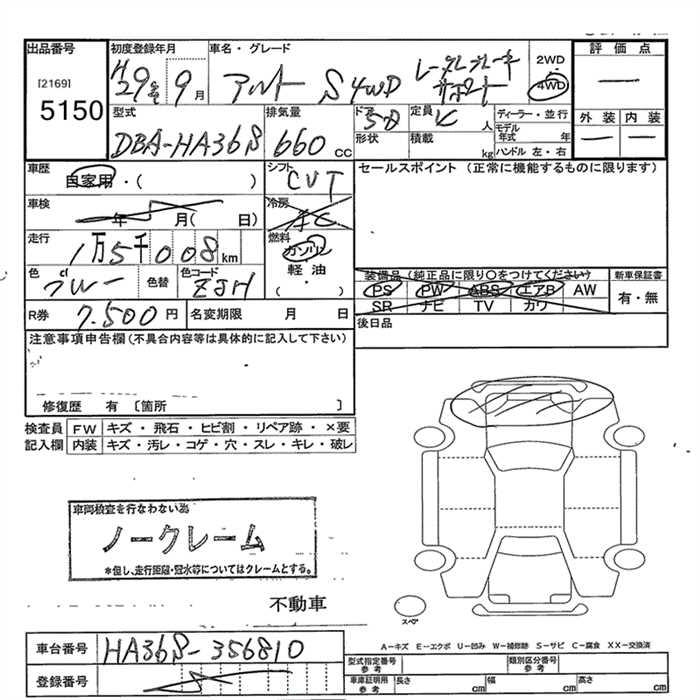 出品番号 初度登録年月 車名・グレード 評価点
[2169] 5150
H29年 9月 アルト S 4WD レーダーブレーキサポート 2WD 4WD
外装 内装
型式 排気量 ドア 定員 ディーラー・並行
DBA-HA36S 660cc 5D 人 モデル年式 年
形状 積載 kg ハンドル 左・右
車歴 自家用・( ) シフト CVT セールスポイント (正常に機能するものに限ります)
車検 年 月( 日) 冷房 AC
走行 1万5千008km 燃料 ガソリン 軽油 (・)
色 cl ブルー 色替 色コード ZJH
装備品(純正品に限り○をつけてください) 新車保証書
PS PW ABS エアB AW 有・無
SR ナビ TV カワ
R券 7,500円 名変期限 月 日 後日品
注意事項申告欄(不具合内容等は具体的に記入して下さい)
修復歴 有 〔箇所 〕
検査員 FW キズ・飛石・ヒビ割・リペア跡・×要
記入欄 内装 キズ・汚レ・コゲ・穴・スレ・キレ・破レ
車両検査を行なわない為
ノークレーム
*但し、走行距離・冠水等についてはクレームとする。
不動車
スペア
A-キズ E-エクボ U-凹み W-補修跡 S-サビ C-腐食 XX-交換済
車台番号 HA36S-356810
型式指定番号 参考 類別区分番号 参考
登録番号
車庫証明用 参考 長さ cm 幅 cm 高さ cm